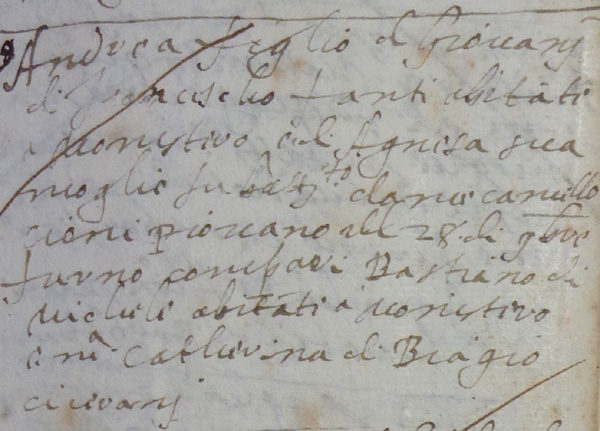 Andrea figlio di Giovani
di Francischo fanti abitati
a monistiro e di Agnesa sua
moglie fu batto da me camillo
cioni piovano del 28 di 9bre
furno compari Bastiano di
Micheli abitati a monistiro
e ma Catherina di Biagio